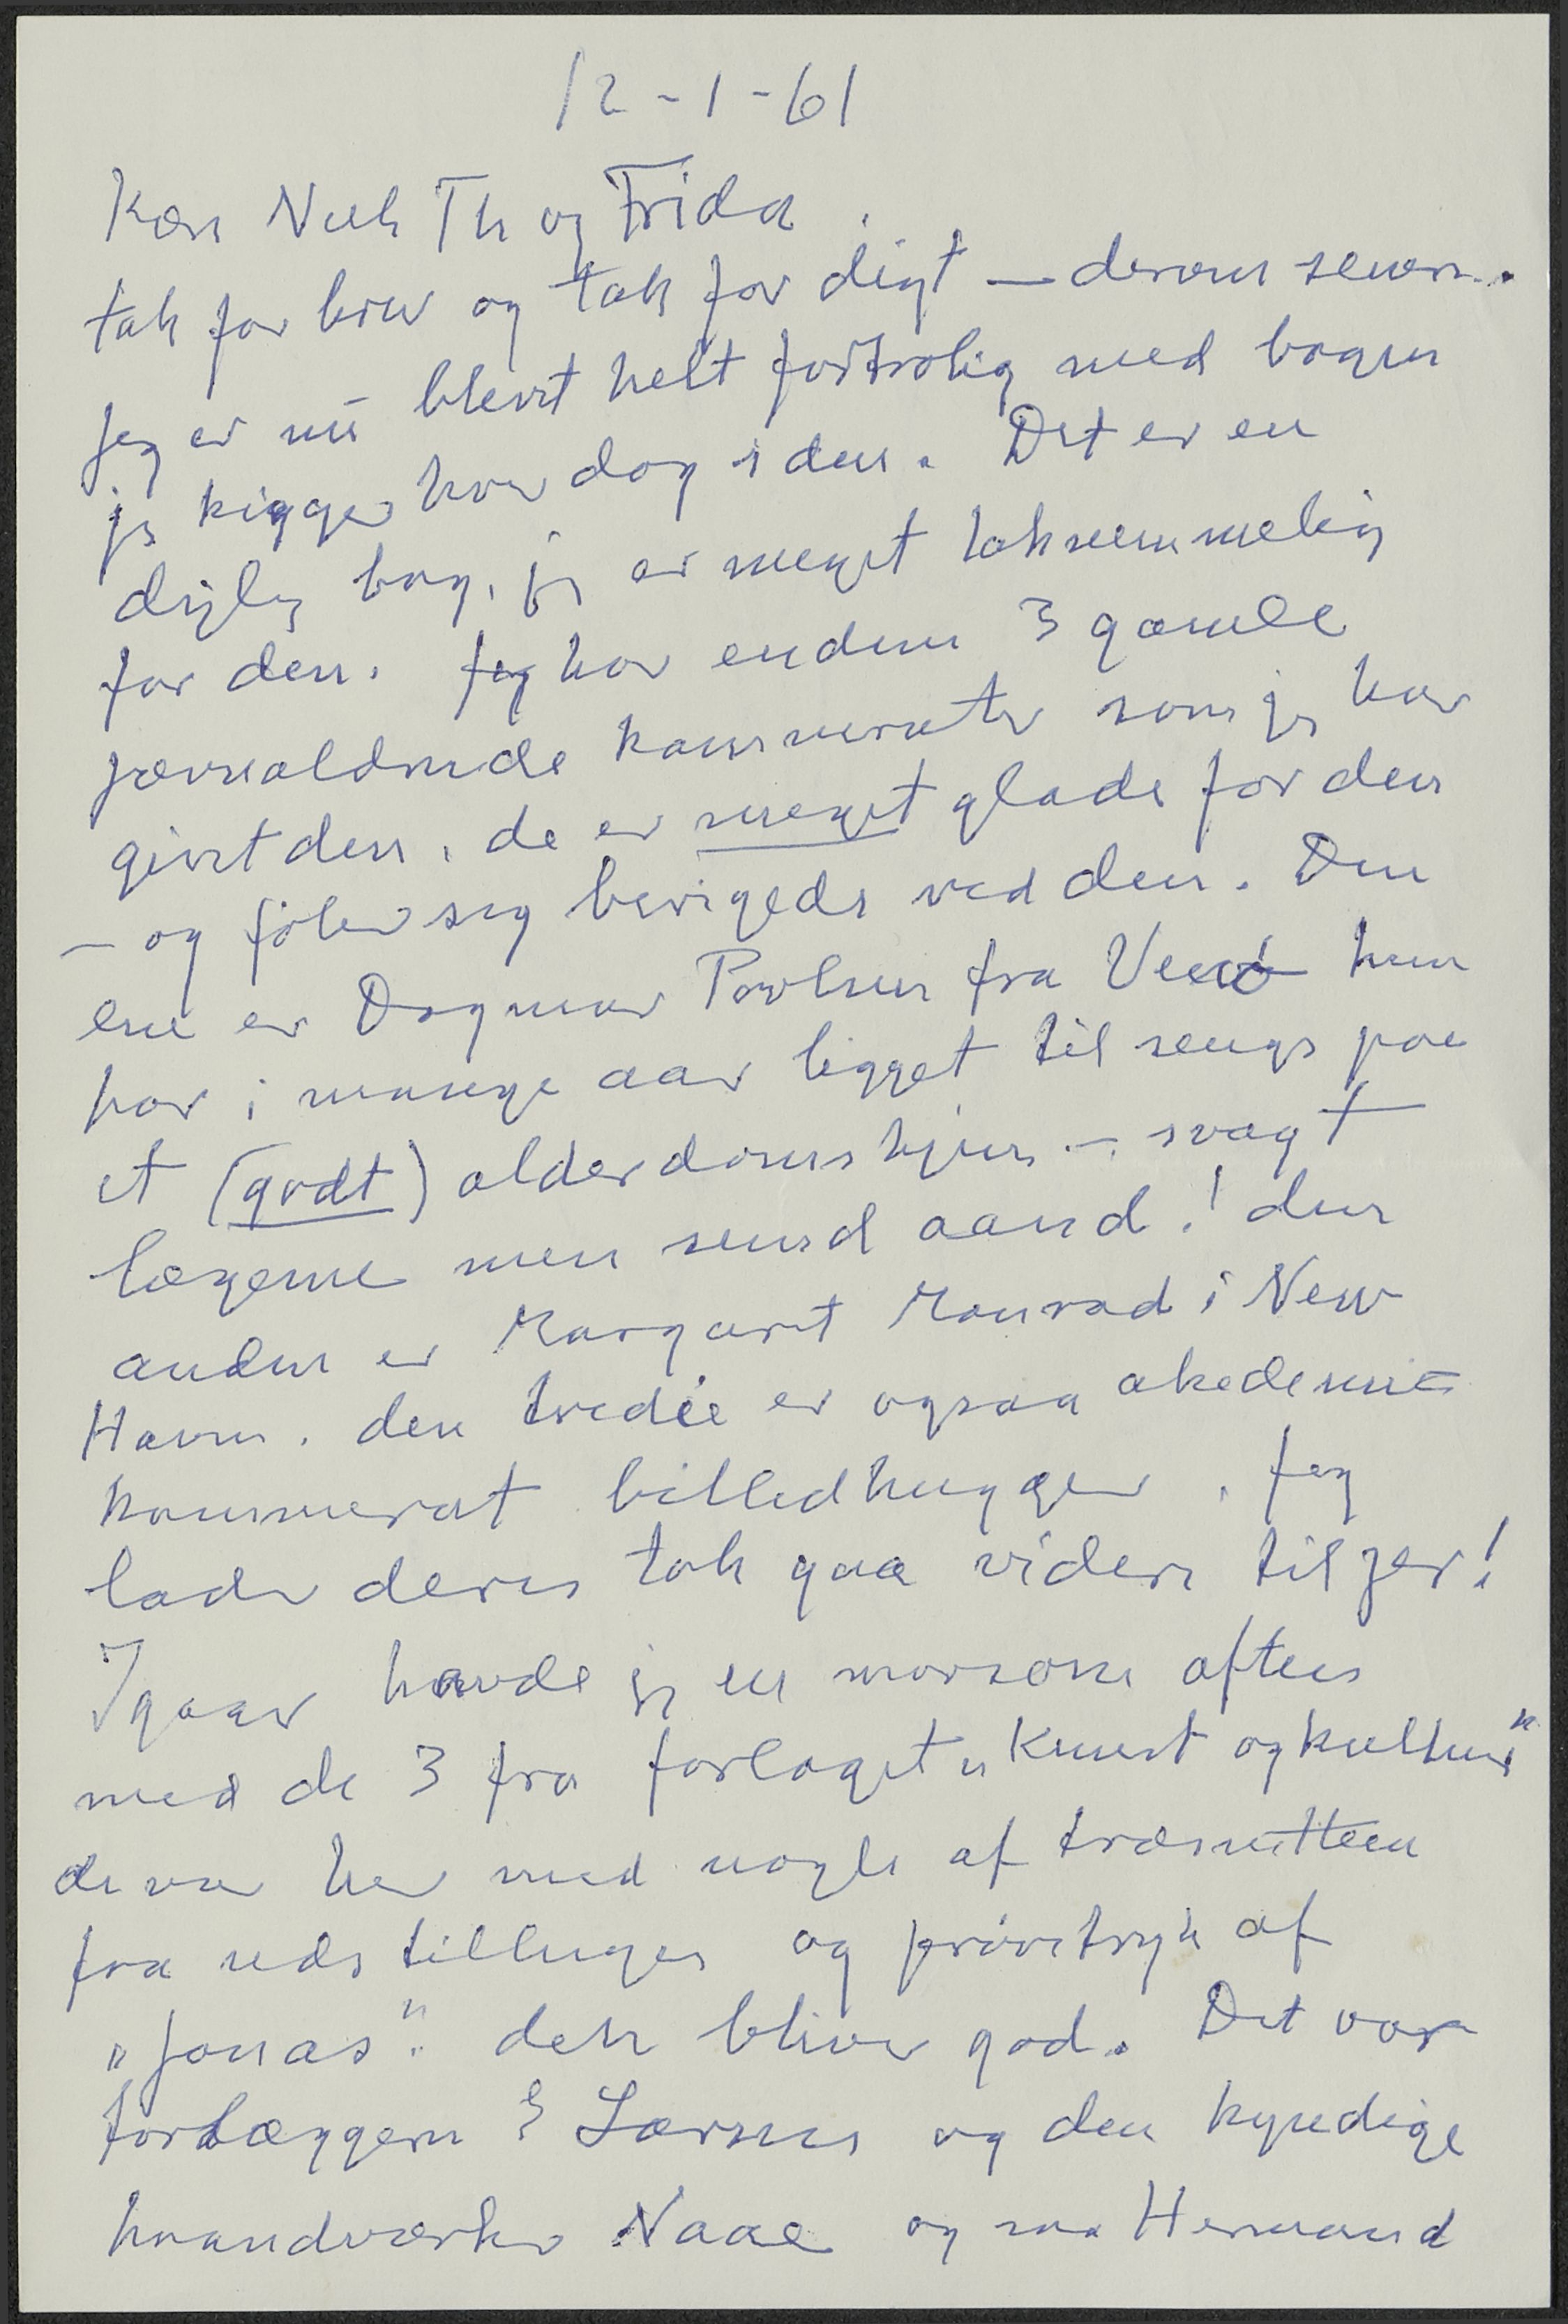 12-1-61
Kære Niels Th og Frida.
tak for brev og tak for digt – derom senere.
Jeg er nu blevet helt fortrolig med bogen
jeg kigger hver dag i den. Det er en
dejlig bog, jeg er meget taknemmelig
for den. Jeg har endnu 3 gamle
jævnaldrende kammerater som jeg har
givet den, de er meget glade for den
– og føler sig berigede ved den. Den
ene er Dagmar Poulsen fra Venø hun
har i mange aar ligget til sengs paa
et (godt) alderdomshjem – svagt
legeme men sund aand! den
anden er Margaret Monrad i New
Haven. den tredie er ogsaa akademi=
kammerat billedhugger. Jeg
lader deres tak gaa videre til jer!
Igaar havde jeg en morsom aften
med de 3 fra forlaget „Kunst og kultur"
de var her med nogle af træsnittene
fra udstillingen og prøvetryk af
„Jonas". den bliver god. Det var
forlæggeren Larsen og den kyndige
haandværker Naae og saa Hermand